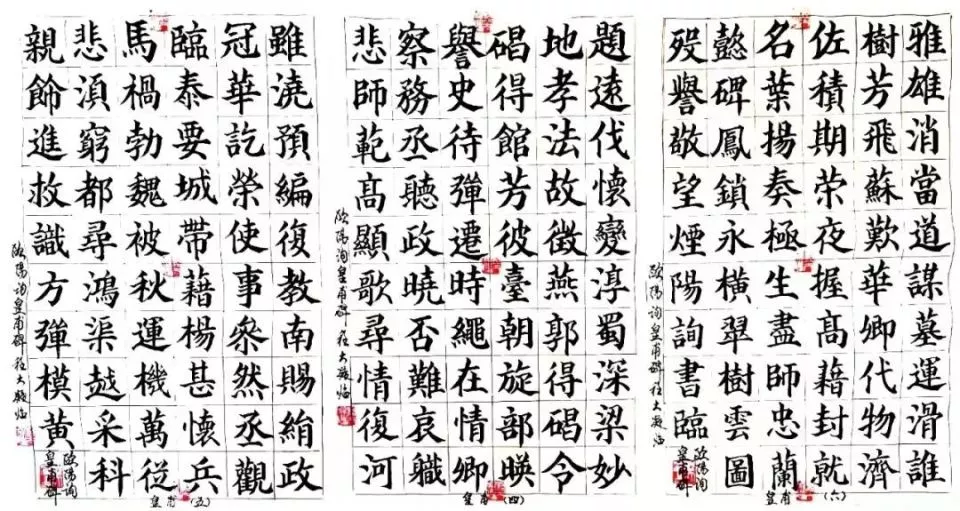 雅雄消當道謀墓運滑誰
樹芳飛蘇歎華卿代物濟
佐積期荣夜握高藉封就
名葉揚奏極生盡師忠蘭
懿碑鳳鎖永橫翠樹雲圖
歿譽敬望煙陽詢書臨
歐陽詢
皇甫碑
歐陽詢皇甫碑程大
皇甫(六)
題遠伐懷變淳蜀深梁妙
地孝法故徵燕郭得碣令
碣得館芳彼臺朝旋部暎
譽史待彈遷時繩在情卿
察務丞聽政曉否難哀職
悲師範高顯歌尋情復河
歐陽詢皇甫碑程大
皇甫(四)
雖澆預編復教南賜絹政
冠華訖榮使事叅然丞觀
臨泰要城帶藉楊甚懷兵
馬禍勃魏被秋運機萬從
悲湏窮都尋鴻渠越采科
親飾進救識方彈模黃
歐陽詢
皇甫碑
歐陽詢皇甫碑程大
皇甫(五)